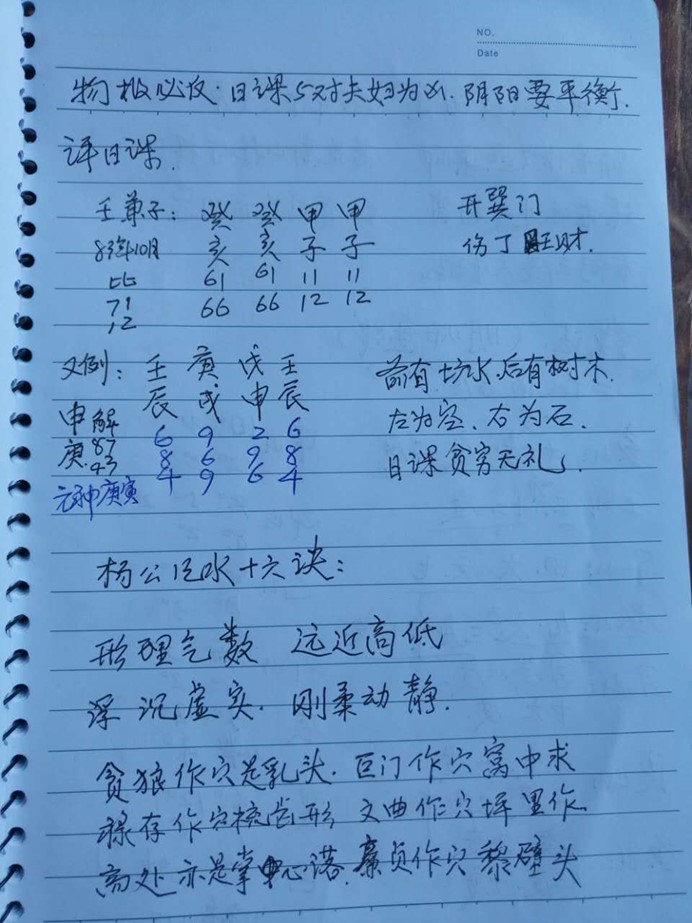 NO.
Date
物极必反. 日课5对夫妇为凶. 阴阳要平衡.
评日课.
壬兼子: 癸 癸 甲 甲 开巽门
83年10月 亥 亥 子 子 伤丁旺财.
比 61 61 11 11
71 66 66 12 12
12
又例: 壬 庚 戊 壬 前有坑水后有树木.
申 解 辰 戌 申 辰 左为空. 右为石.
庚. 87 6 9 2 6 日课贫穷无礼.
43 8 6 9 8
元神庚寅 4 9 6 4
杨公风水十六诀:
形理气数 远近高低
浮沉虚实. 刚柔动静.
贪狼作穴是乳头. 巨门作穴窝中求
禄存作穴梳齿形 文曲作穴坪里作
高处亦是掌心落. 廉贞作穴黎壁头